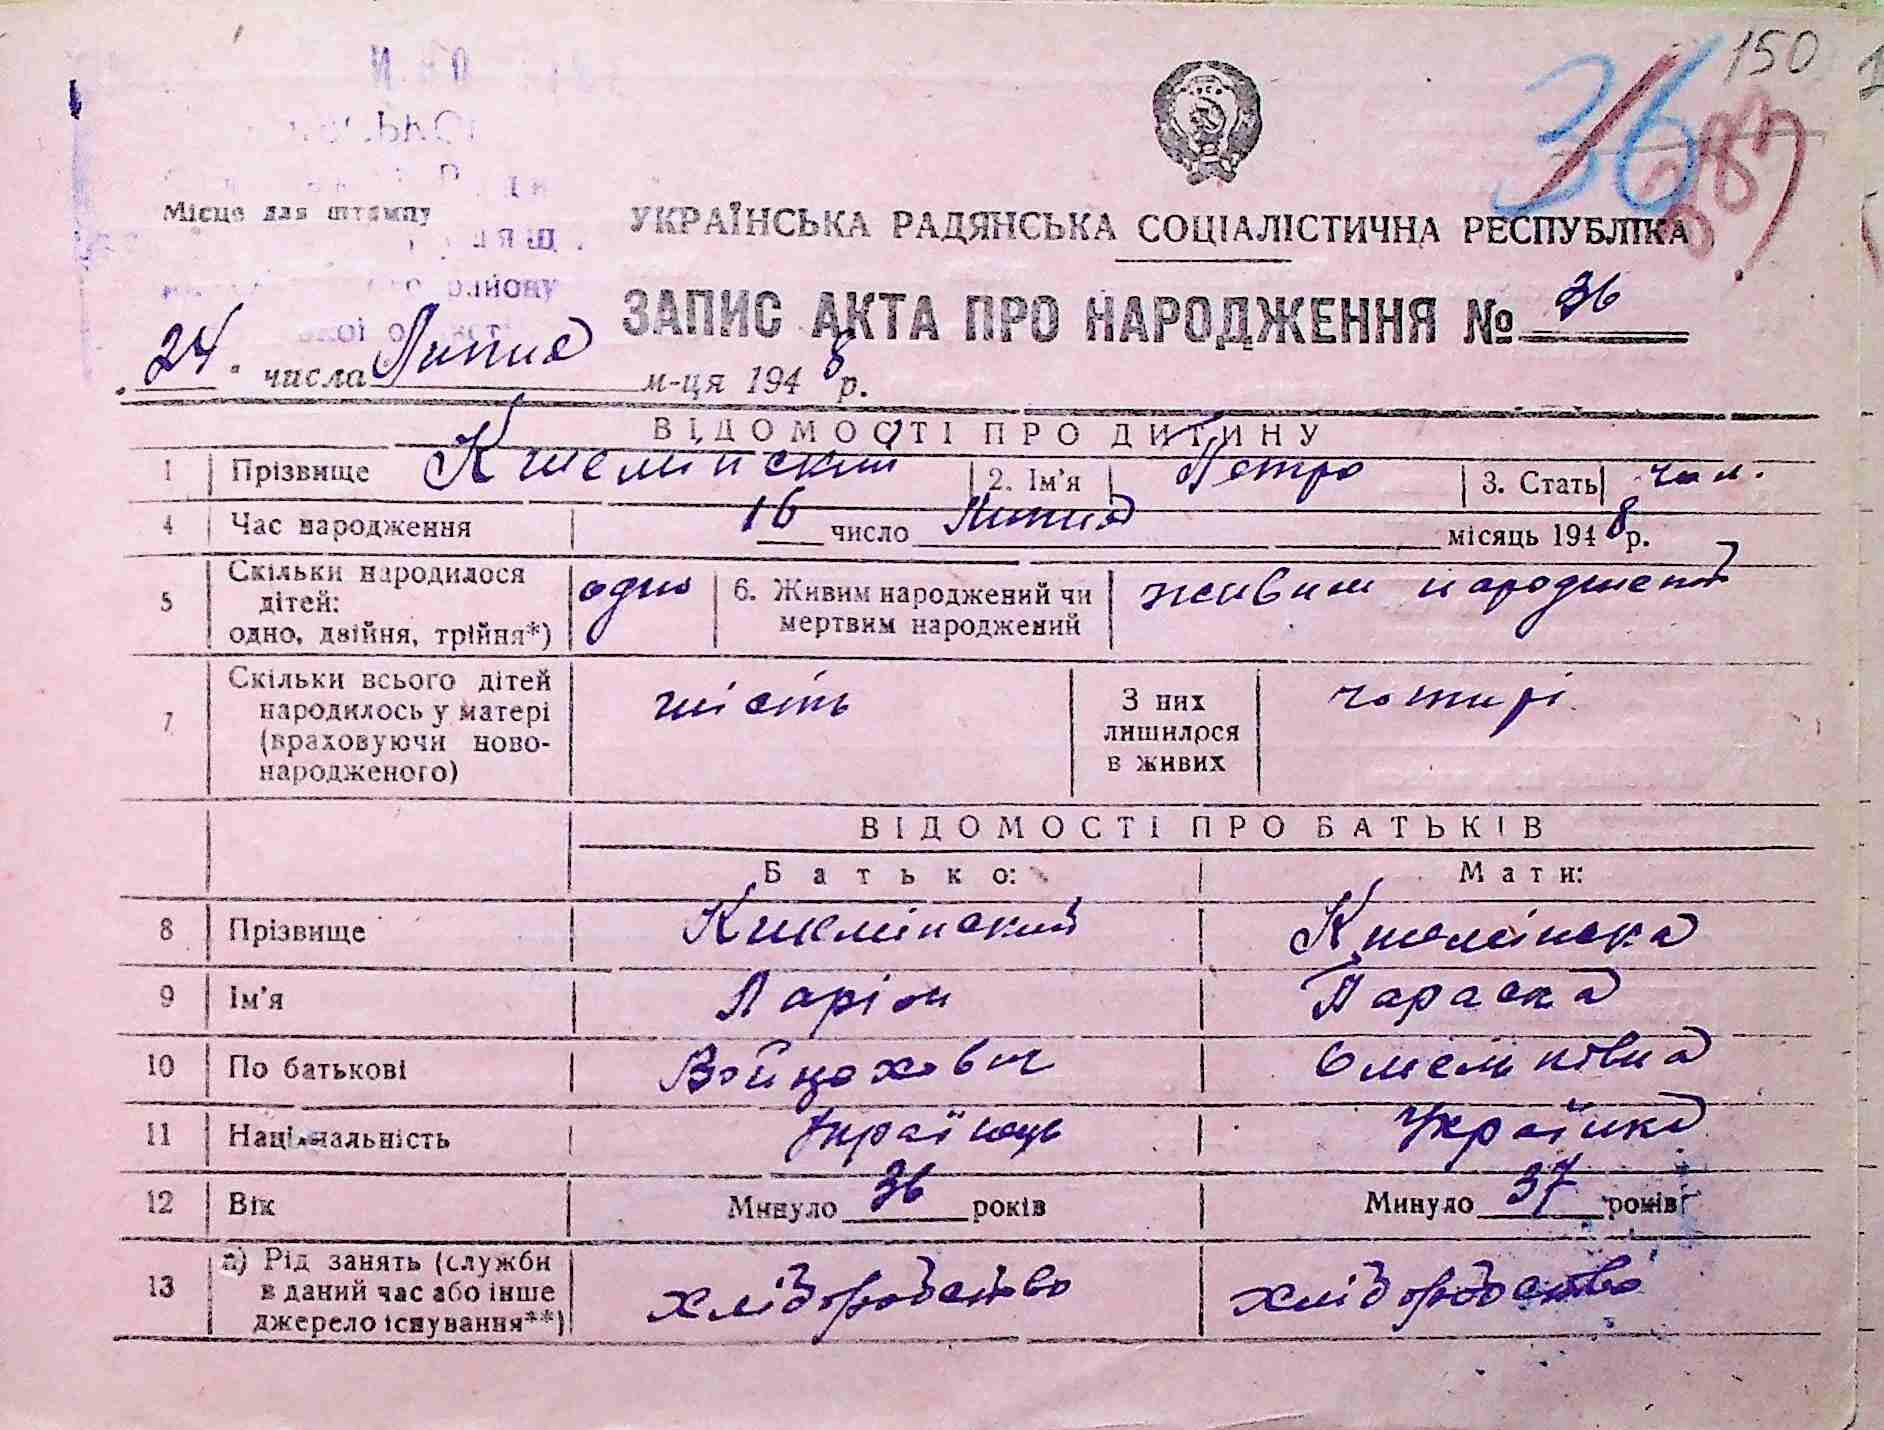 150
36
887
Місце для штампу
УКРАЇНСЬКА РАДЯНСЬКА СОЦІАЛІСТИЧНА РЕСПУБЛІКА
ЗАПИС АКТА ПРО НАРОДЖЕННЯ № 36
„24" числа Липня м-ця 1948 р.
ВІДОМОСТІ ПРО ДИТИНУ
1 Прізвище 2. Ім'я Петро 3. Стать чол.
4 Час народження 16 число Липня місяць 1948 р.
5 Скільки народилося дітей: одно, двійня, трійня*) одно 6. Живим народжений чи мертвим народжений живим народжений
7 Скільки всього дітей народилось у матері (враховуючи новонародженого) шість З них лишилося в живих чотирі
ВІДОМОСТІ ПРО БАТЬКІВ
Батько: Мати:
8 Прізвище
9 Ім'я Ларіон Параска
10 По батькові Войцехович Омельківна
11 Національність Українець Українка
12 Вік Минуло 36 років Минуло 37 років
13 а) Рід занять (служби в даний час або інше джерело існування**) хліборобство хліборобство